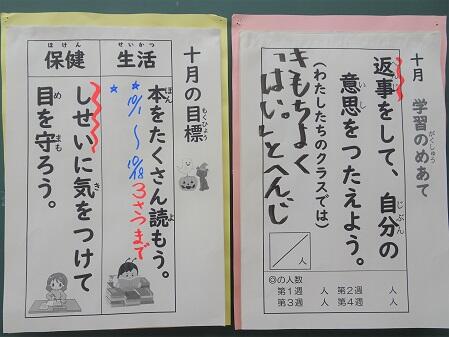 十月 学習のめあて
返事をして、自分の
意思をつたえよう。
(わたしたちのクラスでは)
きもちよく
「はい。」とへんじ
人
◎の人数
第1週 人 第2週 人
第3週 人 第4週 人
十月の目標
生活
本をたくさん読もう。
☆10/1 〜 10/18 3さつまで
保健
しせいに気をつけて
目を守ろう。